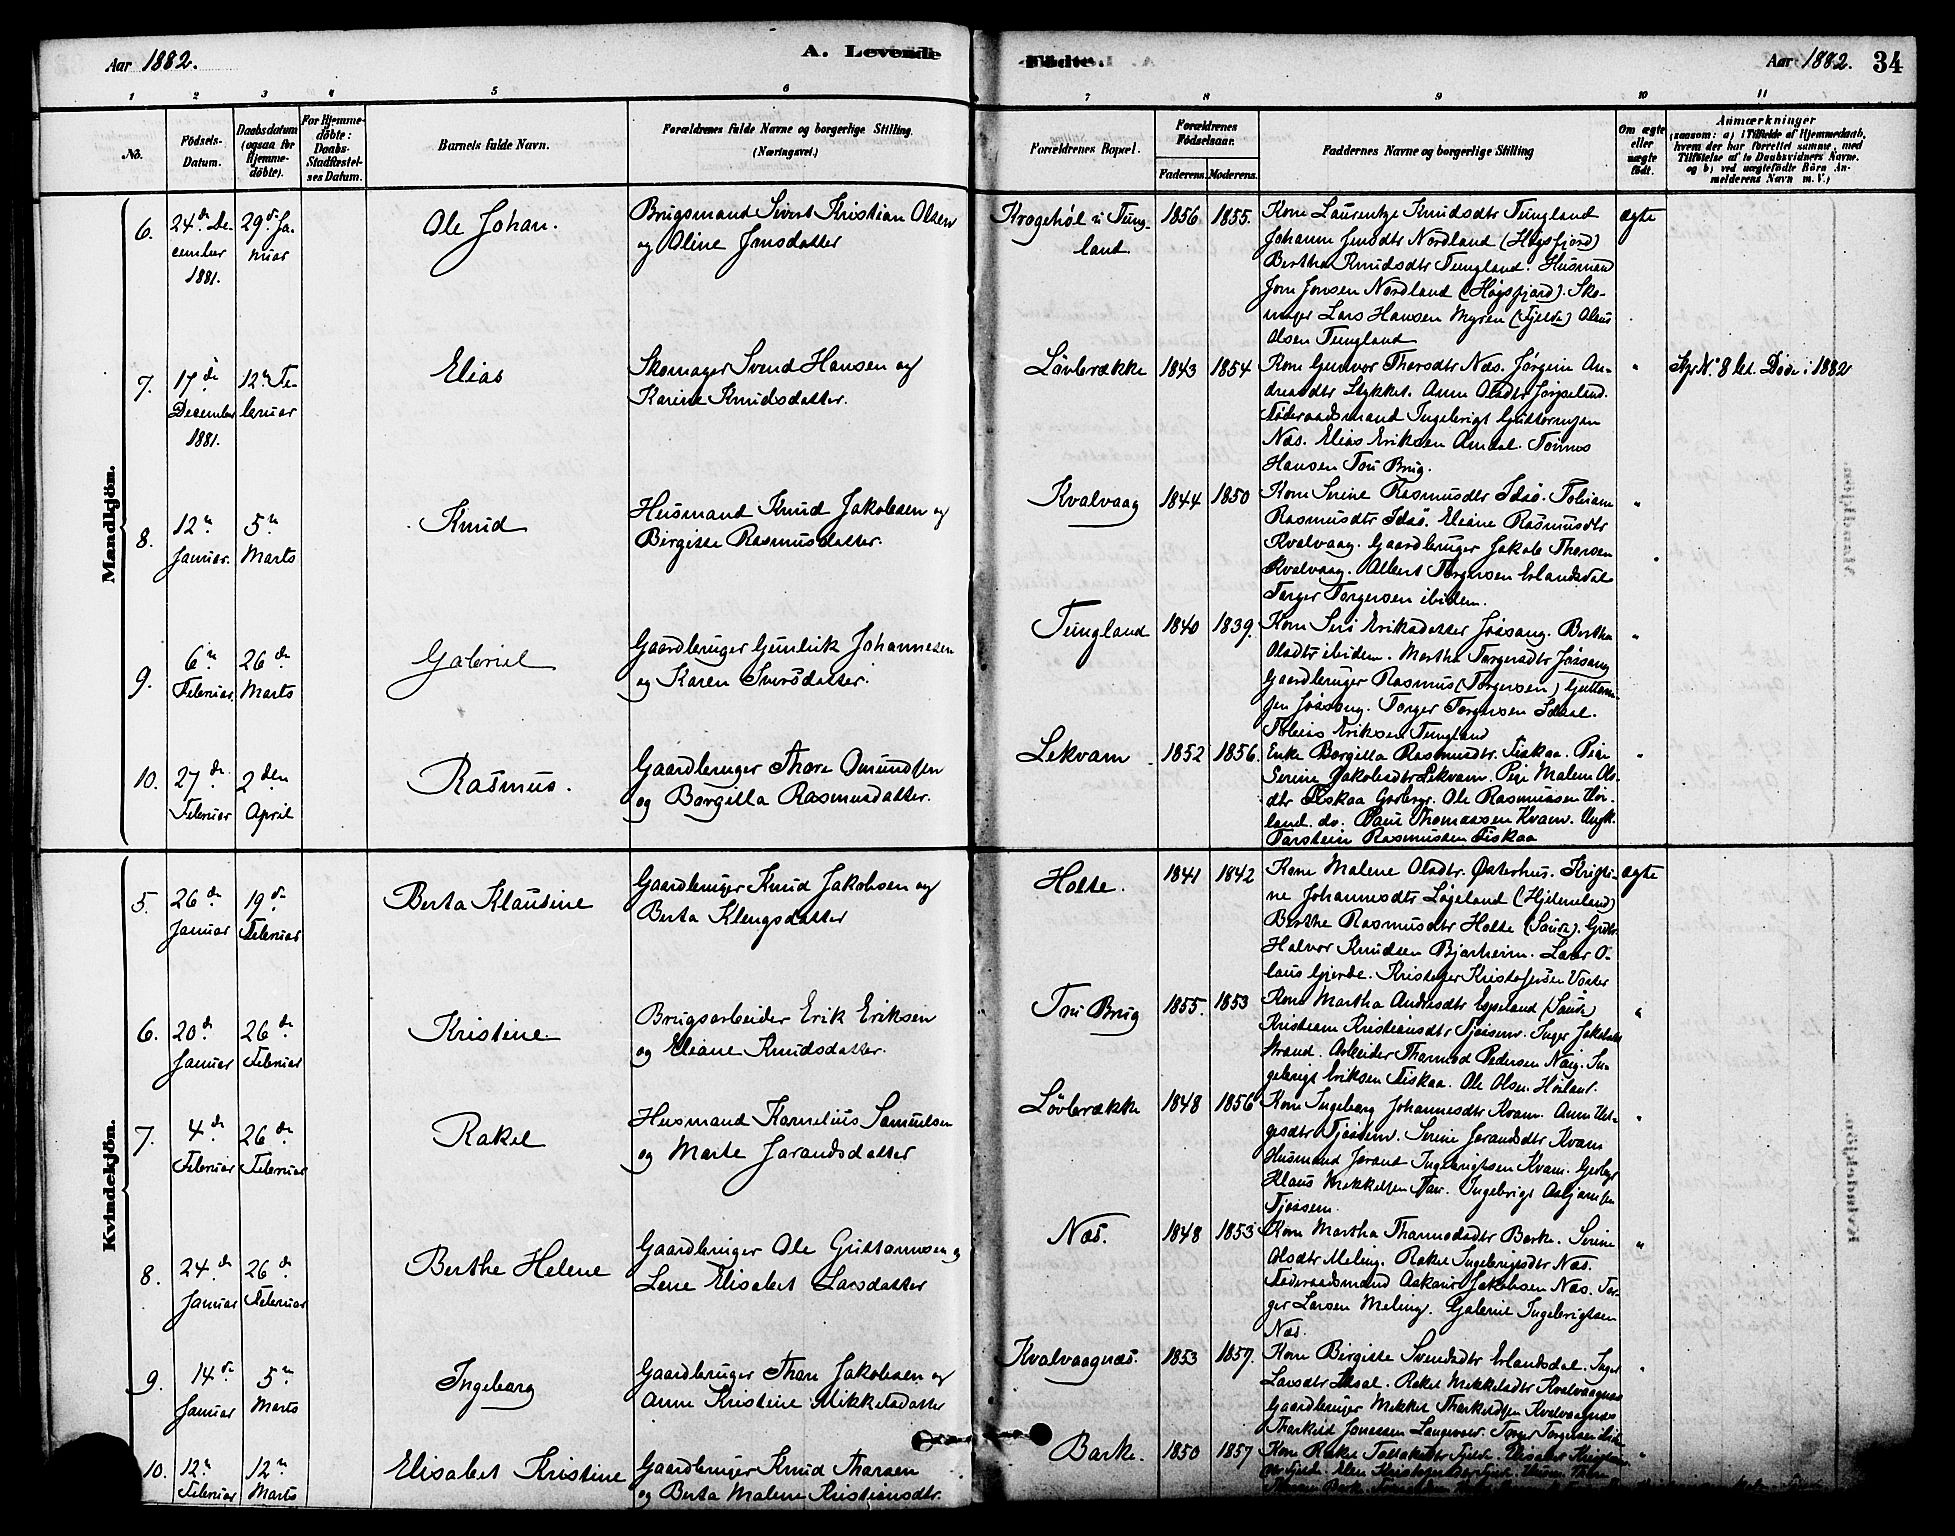 Aar 1882.
A. Levende
Fødte.
Aar 1882.
34
1 2 3 4 5 6 7 8 9 10 11
No.
Fødsels-
Datum.
Daabsdatum
(ogsaa for
Hjemme-
døbte).
For Hjemme-
døbte:
Daabs-
Stadfæstel-
ses Datum.
Barnets fulde Navn.
Forældrenes fulde Navne og borgerlige Stilling.
(Næringsvei.)
Forældrenes Bopæl.
Forældrenes
Fødselsaar.
Faderens. Moderens.
Faddernes Navne og borgerlige Stilling
Om ægte
eller
uægte
født.
Anmærkninger
(saasom: a) i Tilfælde af Hjemmedaab,
hvem der har forrettet samme, med
Tilføielse af to Daabsvidners Navne.
og b) ved uægtefødte Børn An-
melderens Navn m. V.)
Mandkjön.
6.
24de De-
cember
1881.
29de Ja-
nuar
Ole Johan.
Brugsmand Sivert Kristian Olsen
og Oline Jonsdatter
Krogehøl i Tung-
land
1856 1855.
Kone Laurentze Knudsdtr Tungland
Johanne Jonsdtr Nordland (Høgsfjord)
Bertha Knudsdtr Tungland. Husmand
Jon Jonsen Nordland (Høgsfjord). Sko-
mager Lars Hansen Myren (Fjelde) Olaus
Olsen Tungland
ægte
7.
17de
December
1881.
12te Fe-
bruar
Elias
Skomager Svend Hansen og
Karine Knudsdatter.
Løvbrække
1843 1854
Kone Gunvor Thorsdtr Næs. Jørgine An-
dreasdtr Stykket. Anne Olsdtr Jørpeland.
Føderaadsmand Ingebrigt Guttormsen
Næs. Elias Eriksen Amdal. Tønnes
Hansen Tou Brug.
"
No 8 bl. Døde i 1882
8.
12te
Januar.
5te
Marts
Knud
Husmand Knud Jakobsen og
Birgitte Rasmusdatter.
Kvalvaag
1844 1850
Kone Serine Rasmusdtr Idsø. Toline
Rasmusdtr Idsø. Eliane Rasmusdtr
Kvalvaag. Gaardbruger Jakob Thorsen
Kvalvaag. Albert Torgersen Erlandsdal
Torger Torgersen ibidem.
"
9.
6te
Februar
26de
Marts
Gabriel
Gaardbruger Gunleik Johannesen
og Karen Sversdatter.
Tungland
1840 1839.
Kone Siri Eriksdatter Jøssang. Bertha
Olsdtr ibidem. Martha Torgersdtr Jøssang
Gaardbruger Rasmus (Torgersen) Guttorm-
sen Jøssang. Torger Torgersen Idsal.
Tobias Eriksen Tungland
"
10.
27de
Februar
2den
April
Rasmus.
Gaardbruger Thore Omundsen
og Borgilla Rasmusdatter.
Lekvam
1852 1856.
Enke Borgilla Rasmusdtr. Fiskaa. Pige
Serine Jakobsdtr Lekvam. Pige Malene Ols-
dtr Fiskaa Grdbrgr. Ole Rasmussen Hør-
land. do. Paul Thomassen Kvam. Ungk.
Torstein Rasmussen Fiskaa
"
Kvindekjön.
5.
26de
Januar
19de
Februar
Berta Klausine
Gaardbruger Knud Jakobsen og
Berta Klengsdatter
Holte.
1841 1842
Kone Malene Olsdtr. Østerhus. Kristi-
ne Johannesdtr Løgeland (Hjelmeland)
Berthe Rasmusdtr Holte (Saude). Grdbr.
Halvor Knudsen Bjørheim. Laar O-
laus Gjerde. Kristoffer Kristofersen Voster
ægte
6.
20de
Januar
26de
Februar
Kristine
Brugsarbeider Erik Eriksen
og Eliane Knudsdatter.
Tou Brug
1855. 1853
Kone Martha Andrasdtr Espeland (Saude)
Kristiane Kristiansdtr Tjøssem. Inger Jakobsdtr
Strand. Arbeider Thormod Pedersen Næs. In-
gebrigt Eriksen Fiskaa. Ole Olsen Høiland.
"
7.
4de
Februar
26de
Februar
Rakel
Husmand Kornelius Samuelsen
og Marte Jorandsdatter
Løvbrække
1848 1856
Kone Ingeborg Johannesdtr Kvam. Anne Hel-
gesdtr Tjøssem. Serine Jorandsdtr Kvam
Husmand Jorand Ingebrigtsen Kvam. Grdbgr
Klaus Mekkelsen Tau. Ingebrigt Asbjørnsen
Tjøssem.
"
8.
24de
Januar
26de
Februar
Berthe Helene
Gaardbruger Ole Guttormsen og
Lene Elisabet Larsdatter
Næs.
1848 1853
Kone Martha Thormodsdtr Barke. Serine
Olsdtr Meling. Rakel Ingebrigtsdtr Næs.
Føderaadsmand Askaur Jakobsen Næs. Tor-
ger Larsen Meling. Gabriel Ingebrigtsen
Næs.
"
9.
14de
Januar
5te
Marts
Ingeborg
Gaardbruger Thore Jakobsen og
Anne Kristine Mikkelsdatter
Kvalvaagnæs.
1853 1857.
Kone Birgitte Svendsdtr Erlandsdal. Inger
Larsdtr Idsal. Rakel Mekkelsdtr Kvalvaagnæs
Gaardbruger Mekkel Thorkeldsen Kvalvaagnæs
Thorkild Jonassen Langevold. Torger Torgersen
"
10.
12te
Februar
12te
Marts
Elisabet Kristine
Gaardbruger Knud Thorsen
og Berta Malene Kristiansdtr.
Barke.
1850 1857
Kone Rakel
"